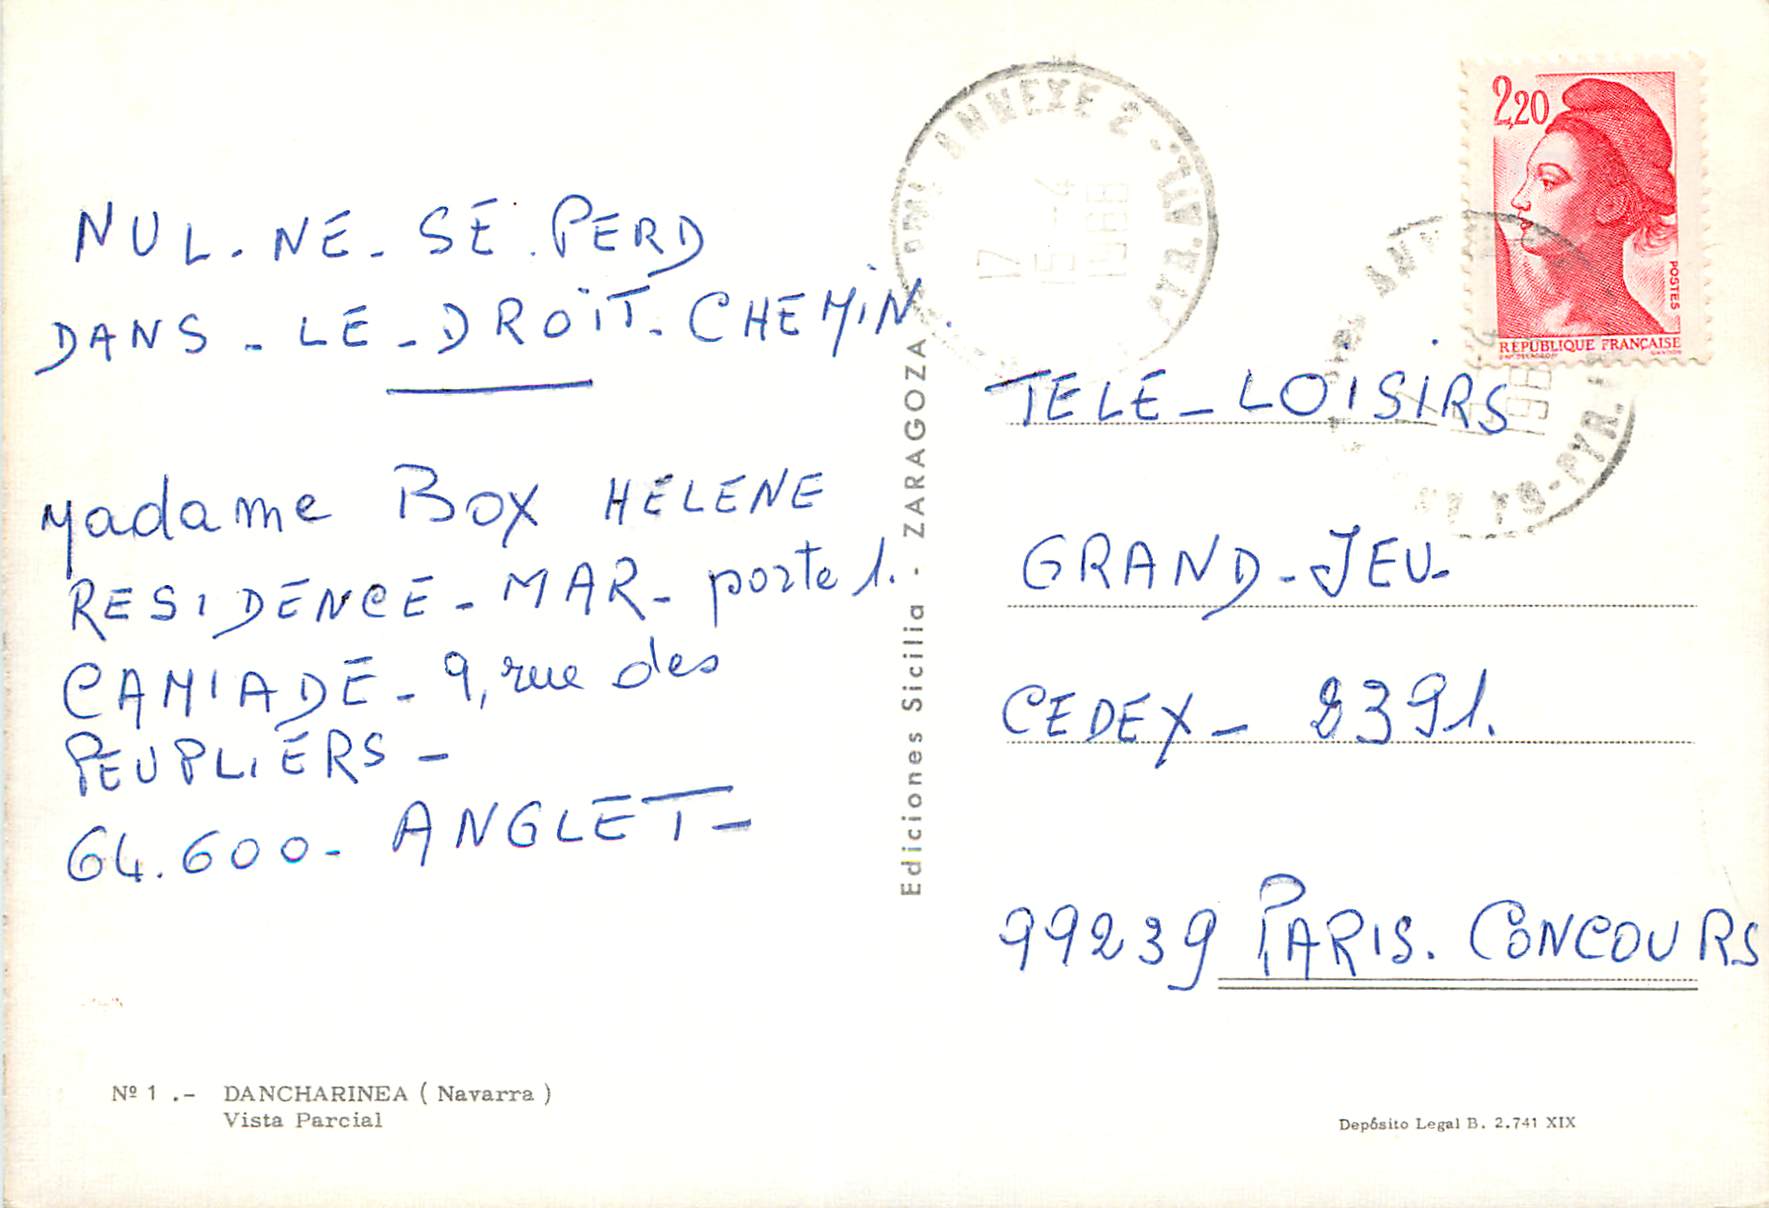 NUL. NE. SE. PERD
DANS - LE - DROIT. CHEMIN.
Madame BOX HELENE
RESIDENCE - MAR - porte 1.
CAMIADE - 9, rue des
PEUPLIERS -
64.600 - ANGLET -
Nº 1 .- DANCHARINEA ( Navarra )
Vista Parcial
Ediciones Sicilia - ZARAGOZA
ANNEXE 2
PYR.
17
15-4
1988
2,20
POSTES
REPUBLIQUE FRANÇAISE
PYR.
TELE - LOISIRS
GRAND - JEU -
CEDEX - 2391.
99239 PARIS. CONCOURS
Depósito Legal B. 2.741 XIX